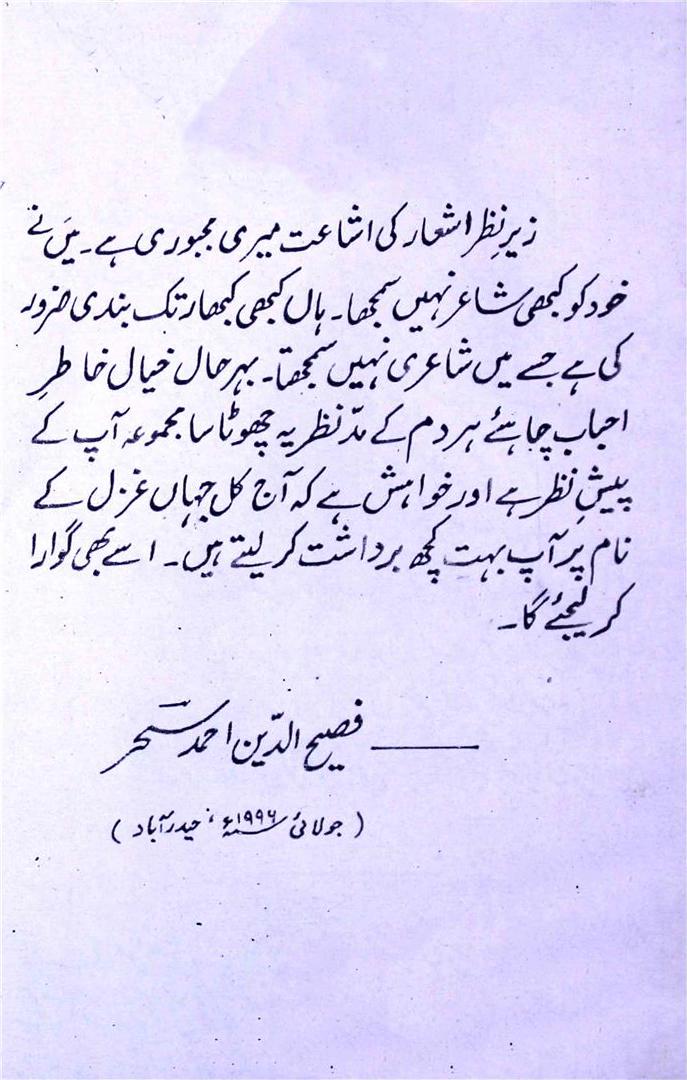 زیرِ نظر اشعار کی اشاعت میری مجبوری ہے۔ میں نے
خود کو کبھی شاعر نہیں سمجھا۔ ہاں کبھی کبھار تک بندی ضرور
کی ہے جسے میں شاعری نہیں سمجھتا۔ بہر حال خیال خاطرِ
احباب چاہئے ہر دم کے مدّ نظر یہ چھوٹا سا مجموعہ آپ کے
پیشِ نظر ہے اور خواہش ہے کہ آج کل جہاں غزل کے
نام پر آپ بہت کچھ برداشت کر لیتے ہیں۔ اسے بھی گوارا
کر لیجئے گا۔
——— فصیح الدّین احمد سحر
( جولائی ۱۹۹۶ء ، حیدرآباد )